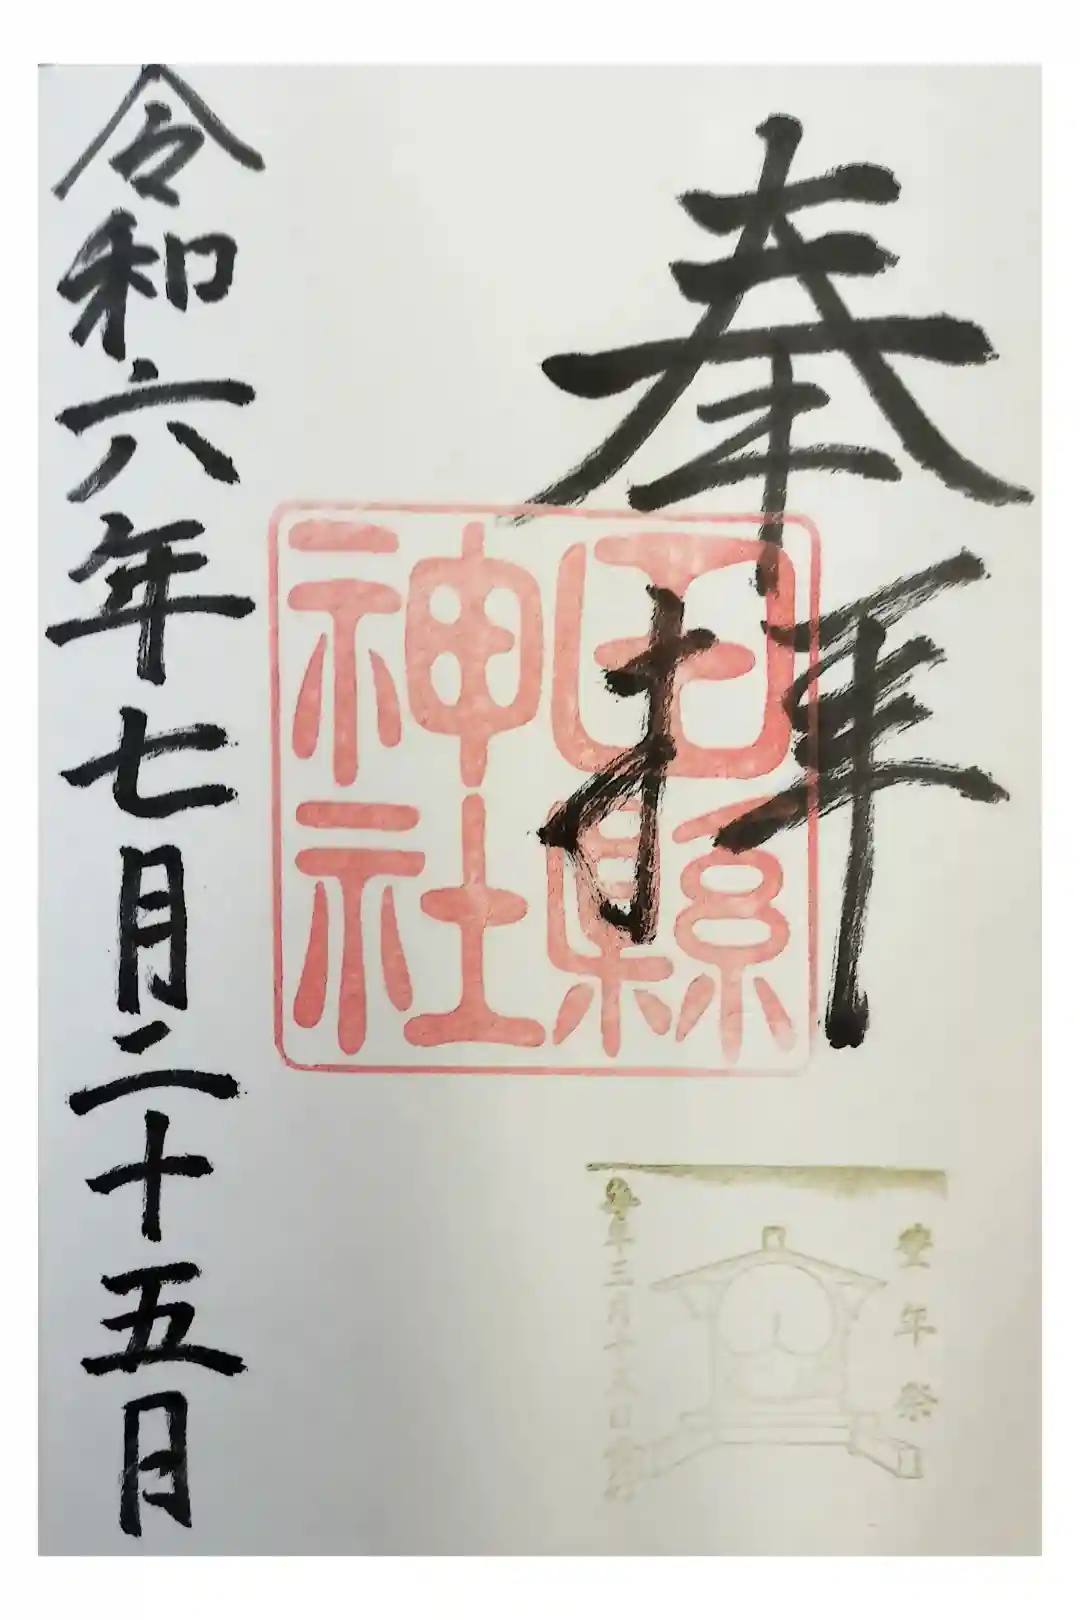 奉拝
田縣
神社
豊年祭
毎年三月十五日
令和六年七月二十五日